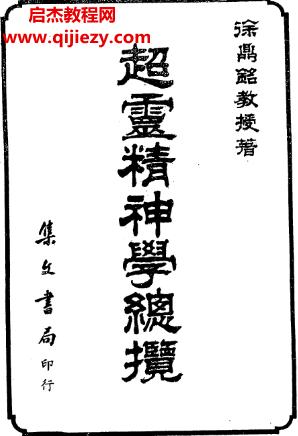 启杰教程网
www.qijiezy.com
徐鼎銘教授著
超靈精神學總攬
集文書局印行